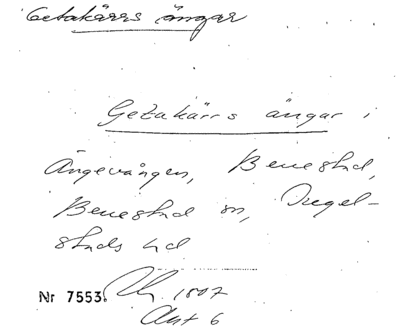 Getakärrs ängar
Getakärrs ängar i
Ängevången, Benestad,
Benestad sn, Ingel-
stads hd
Nr 7553. 1807
Akt 6